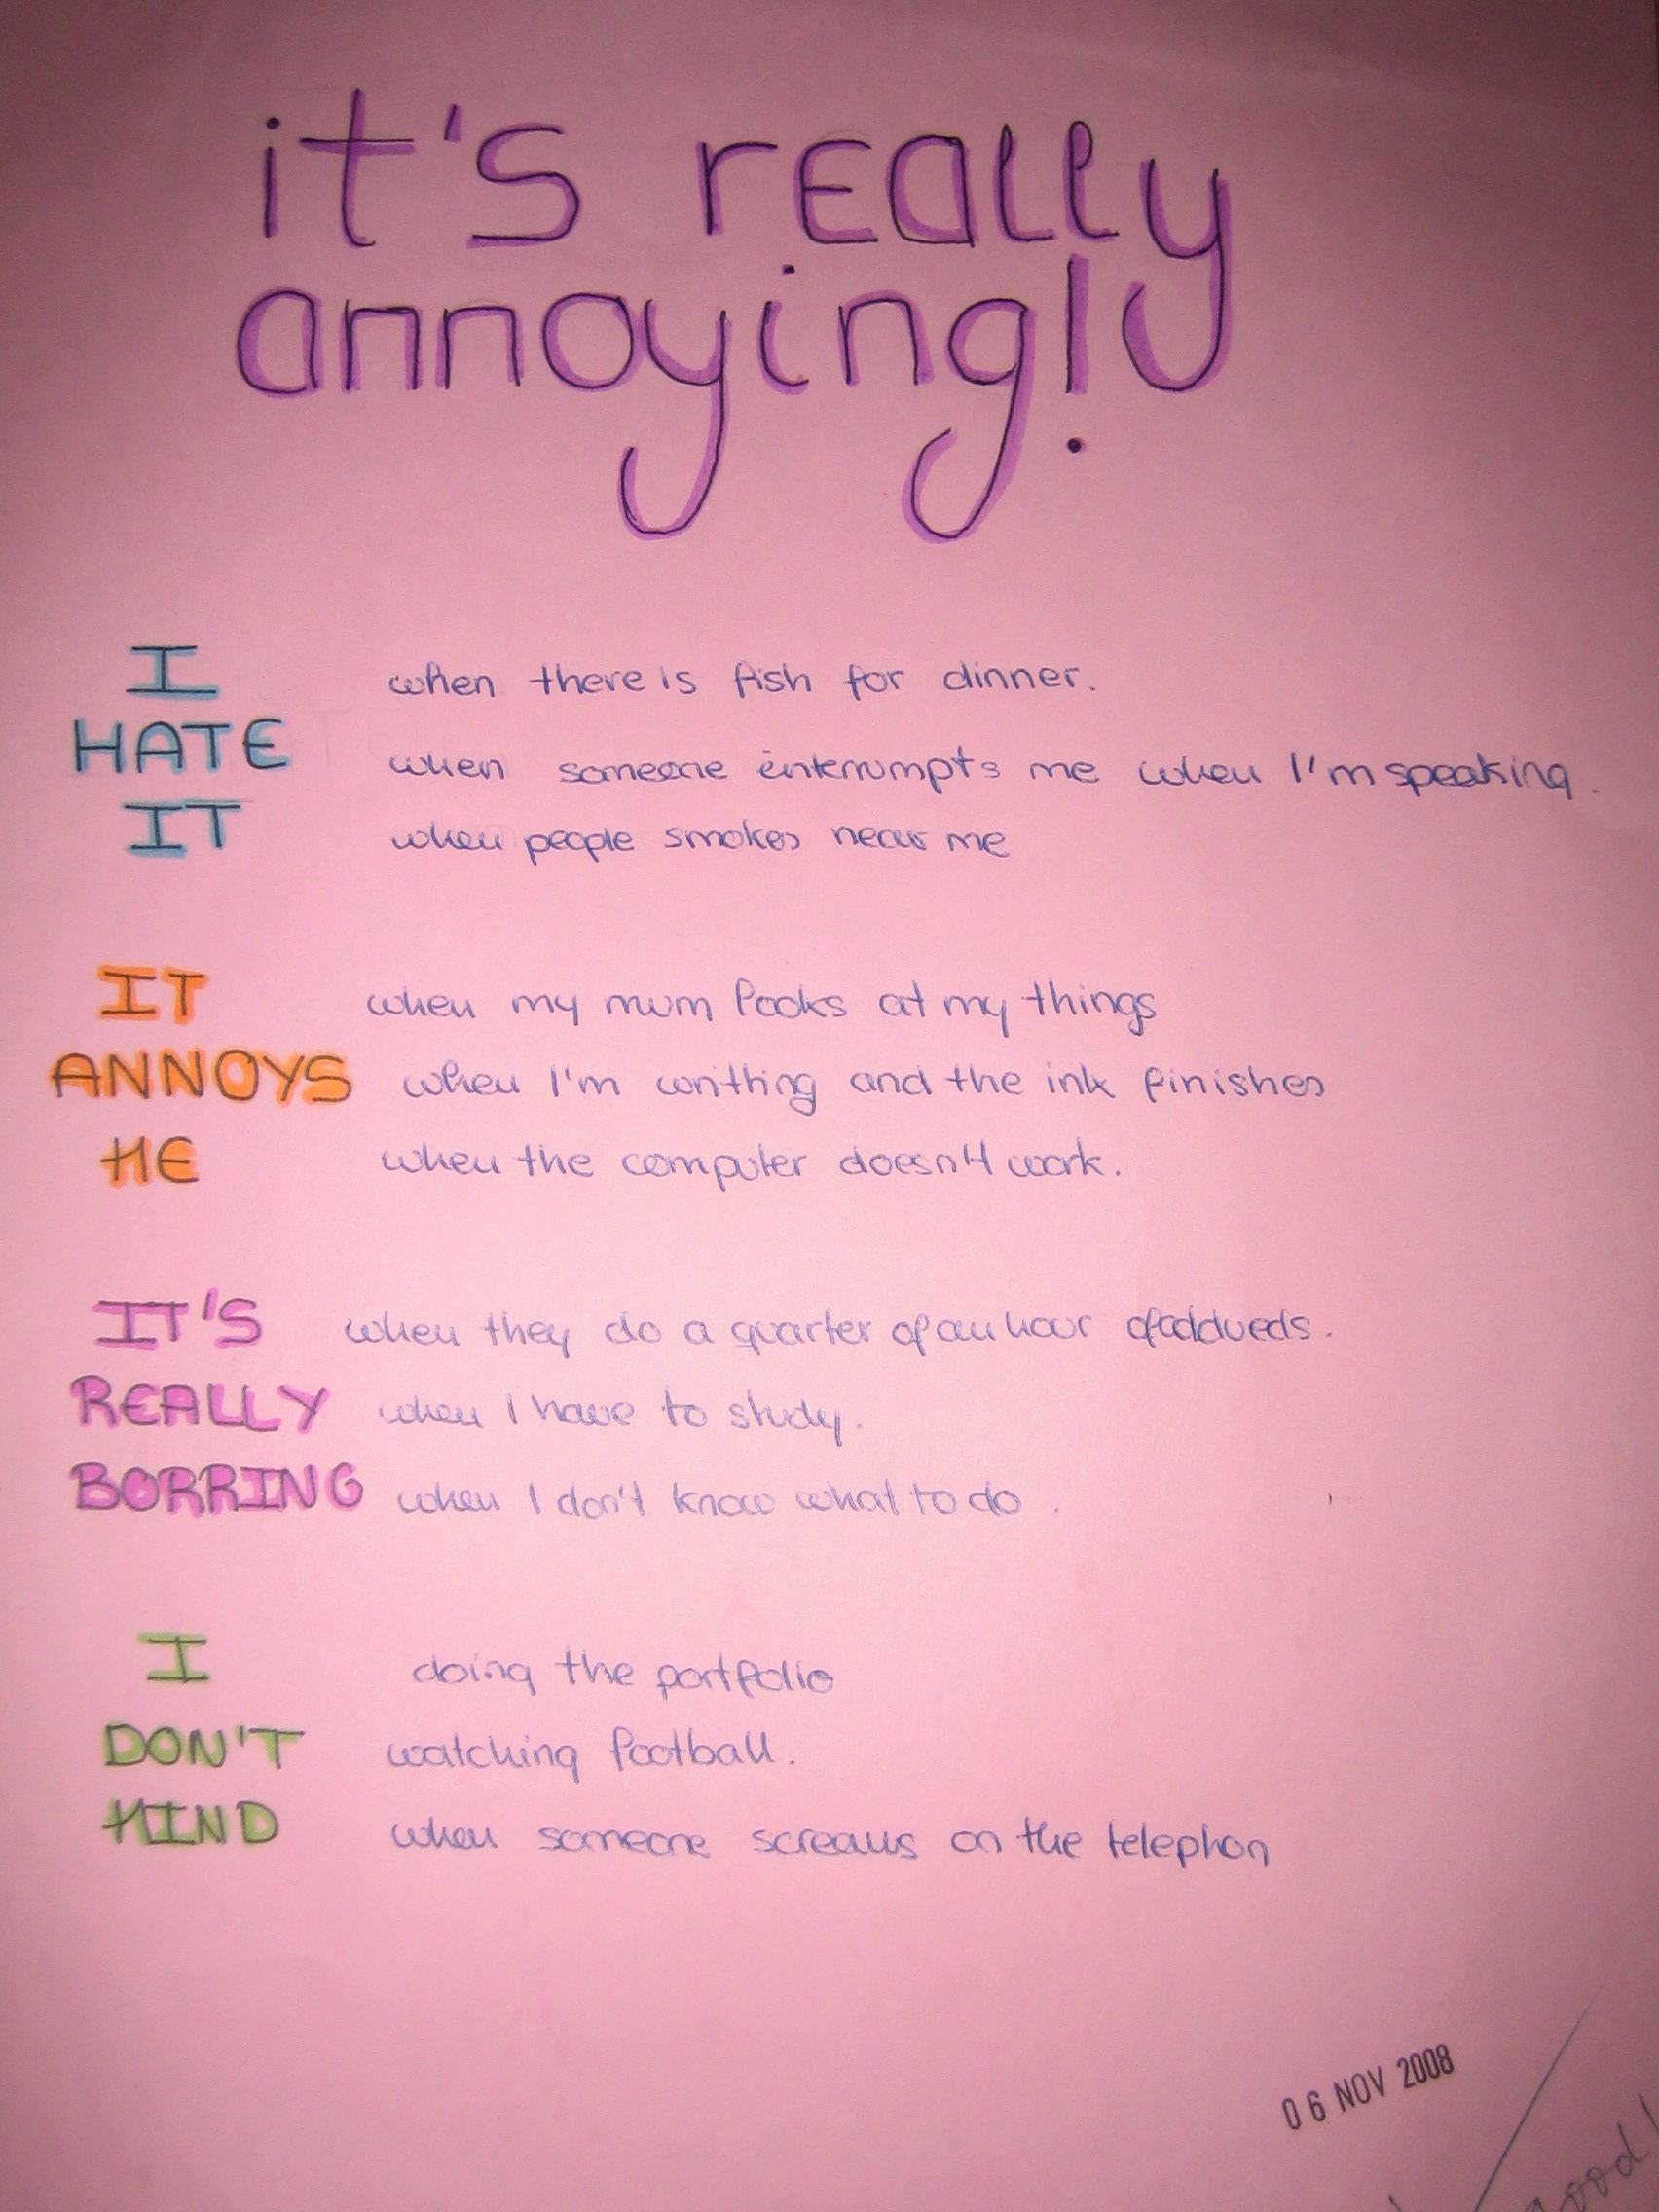 it's really
annoying!
I when there is fish for dinner.
HATE when someone interrumpts me when I'm speaking.
IT when people smokes near me
IT when my mum looks at my things
ANNOYS when I'm writhing and the ink finishes
ME when the computer doesn't work.
IT'S when they do a quarter of an hour of
REALLY when I have to study.
BORRING when I don't know what to do.
I doing the portfolio
DON'T watching football.
MIND when someone screams on the telephon
06 NOV 2008
good!